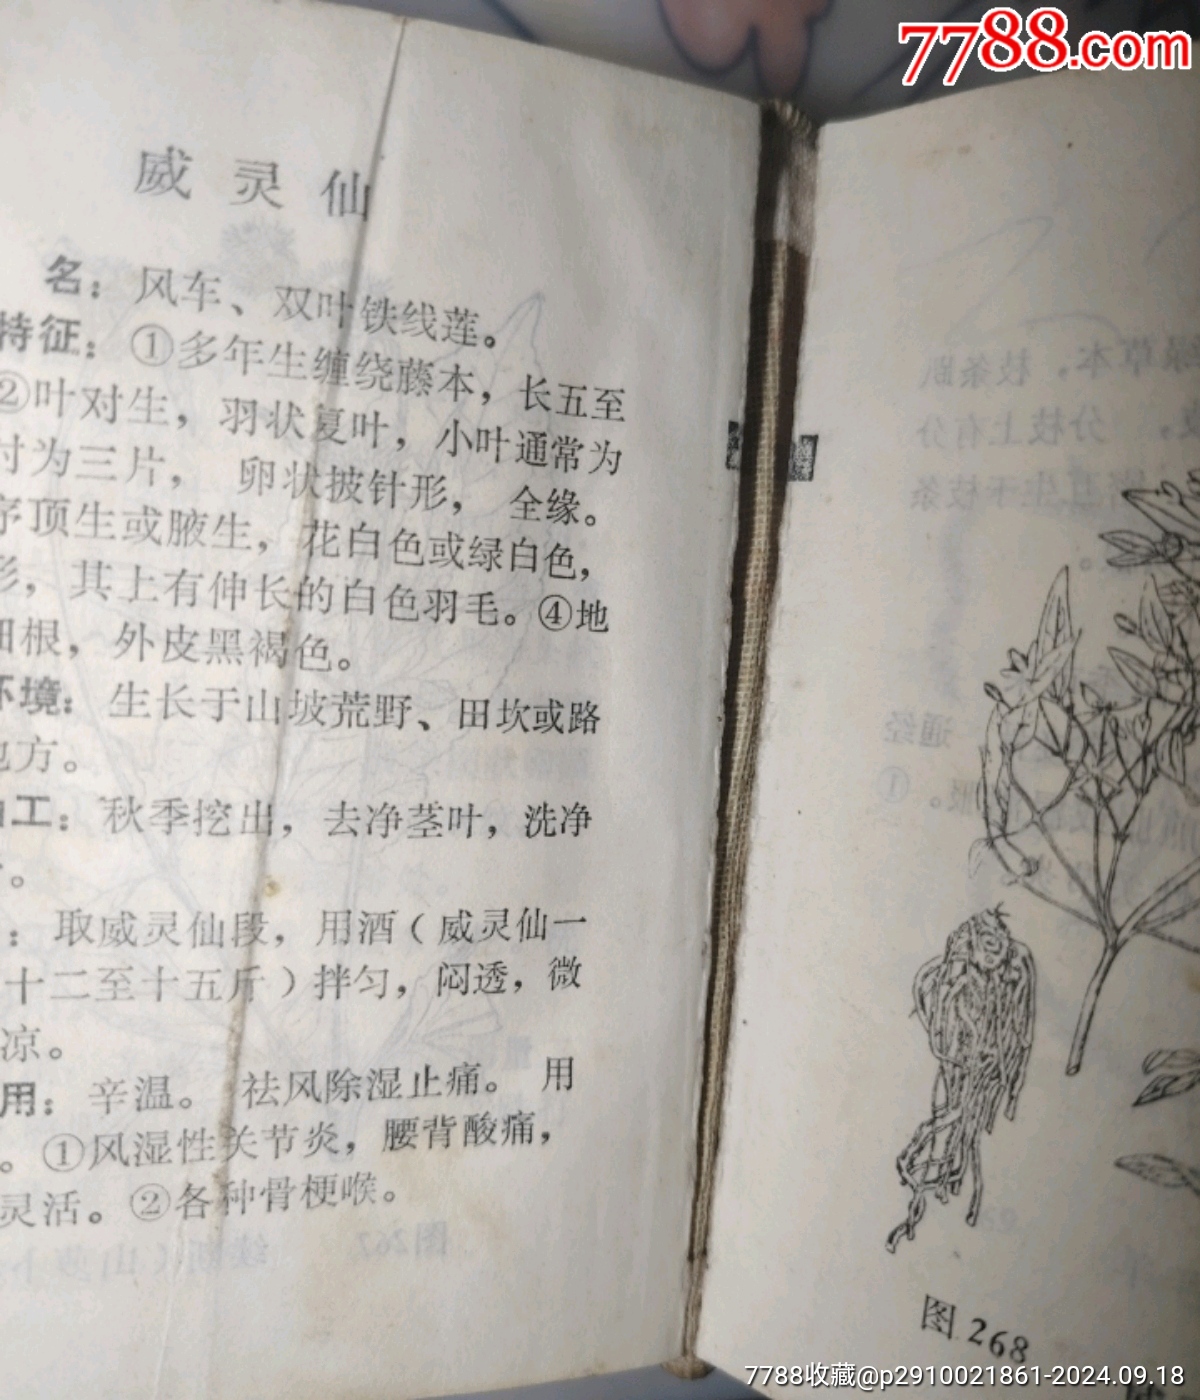 7788.com
威灵仙
名：风车、双叶铁线莲。
特征：①多年生缠绕藤本，长五至
②叶对生，羽状复叶，小叶通常为
时为三片，卵状披针形，全缘。
序顶生或腋生，花白色或绿白色，
形，其上有伸长的白色羽毛。④地
细根，外皮黑褐色。
环境：生长于山坡荒野、田坎或路
地方。
加工：秋季挖出，去净茎叶，洗净
。
：取威灵仙段，用酒（威灵仙一
十二至十五斤）拌匀，闷透，微
凉。
用：辛温。祛风除湿止痛。用
。①风湿性关节炎，腰背酸痛，
灵活。②各种骨梗喉。
图268
7788收藏@p2910021861-2024.09.18